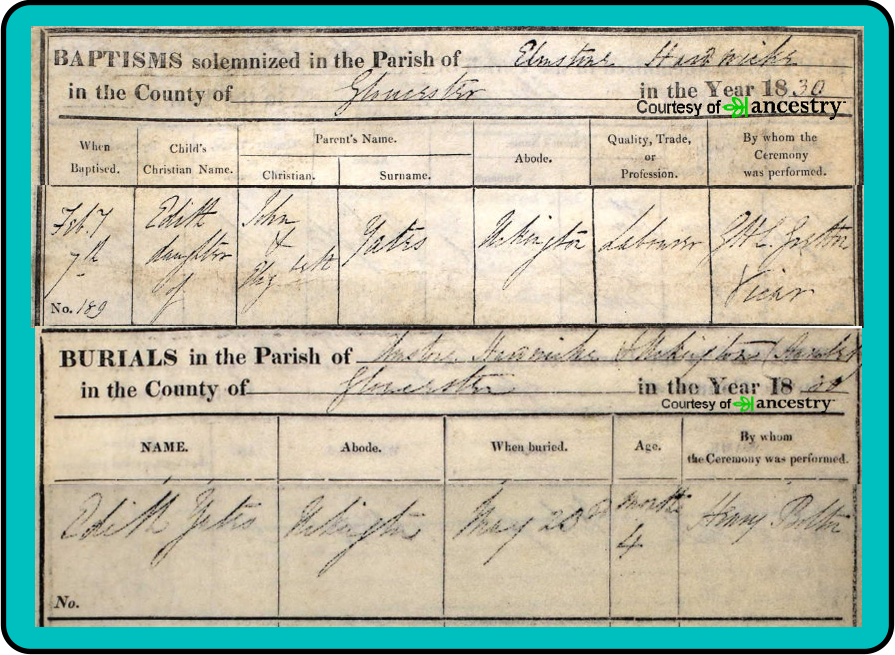 BAPTISMS solemnized in the Parish of Elmstone Hardwicke
in the County of Gloucester in the Year 1830
Courtesy of ancestry
When Baptised.
Child's Christian Name.
Parent's Name.
Christian.
Surname.
Abode.
Quality, Trade, or Profession.
By whom the Ceremony was performed.
Feb 7
7th
Edith
daughter
of
John
&
Yates
Uckington
Labourer
Vicar
No. 189
BURIALS in the Parish of Hardwicke
in the County of Gloucester in the Year 1830
Courtesy of ancestry
NAME.
Abode.
When buried.
Age.
By whom the Ceremony was performed.
Edith Yates
Uckington
May
months
4
Henry
No.